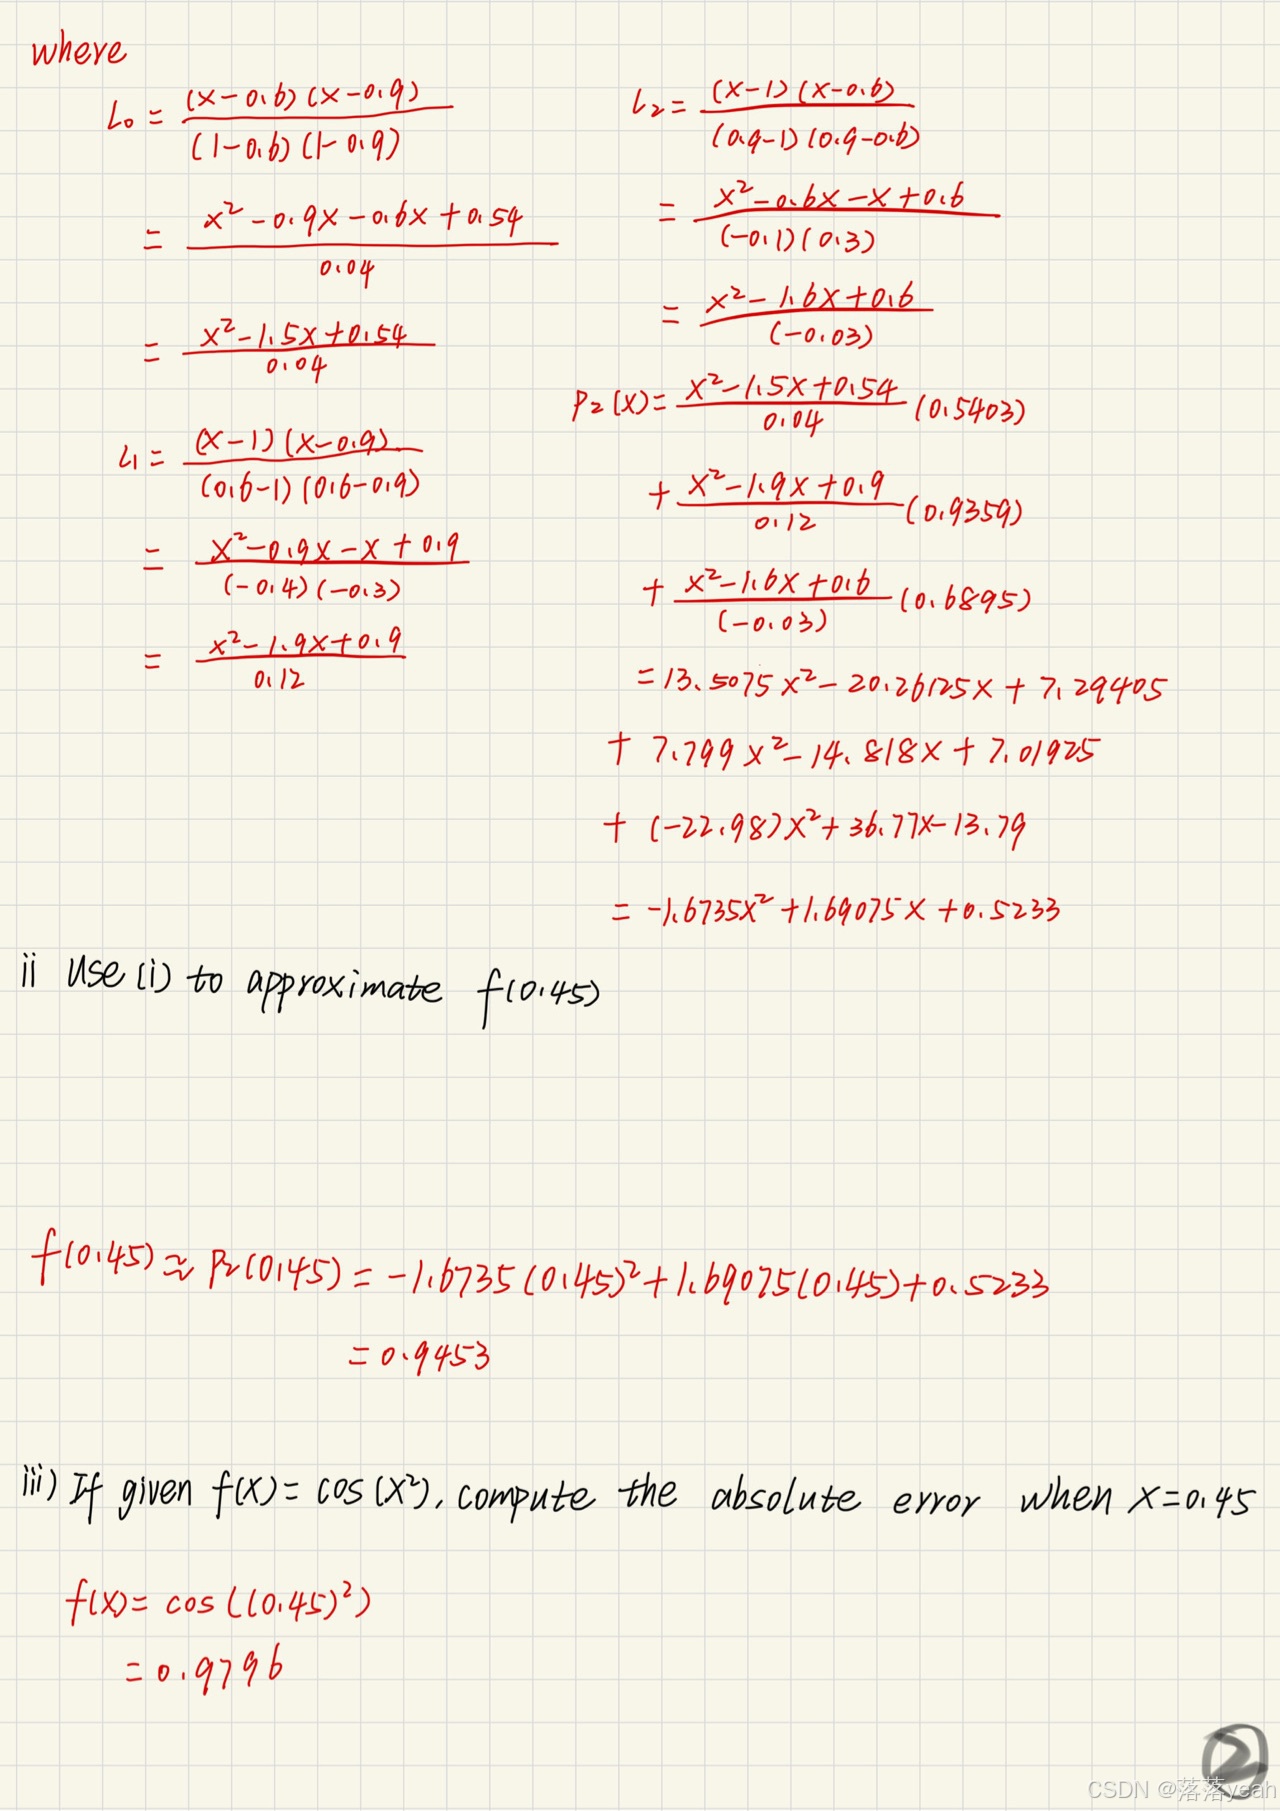 where
L₀ = (x-0.6)(x-0.9) / (1-0.6)(1-0.9)
= x² - 0.9x - 0.6x + 0.54 / 0.04
= x² - 1.5x + 0.54 / 0.04
L₁ = (x-1)(x-0.9) / (0.6-1)(0.6-0.9)
= x² - 0.9x - x + 0.9 / (-0.4)(-0.3)
= x² - 1.9x + 0.9 / 0.12
L₂ = (x-1)(x-0.6) / (0.9-1)(0.9-0.6)
= x² - 0.6x - x + 0.6 / (-0.1)(0.3)
= x² - 1.6x + 0.6 / (-0.03)
P₂(x) = x² - 1.5x + 0.54 / 0.04 (0.5403)
+ x² - 1.9x + 0.9 / 0.12 (0.9359)
+ x² - 1.6x + 0.6 / (-0.03) (0.6895)
= 13.5075x² - 20.26125x + 7.29405
+ 7.799x² - 14.818x + 7.01925
+ (-22.98)x² + 36.77x - 13.79
= -1.6735x² + 1.69075x + 0.5233
ii Use (i) to approximate f(0.45)
f(0.45) ≈ P₂(0.45) = -1.6735(0.45)² + 1.69075(0.45) + 0.5233
= 0.9453
iii) If given f(x) = cos(x²), compute the absolute error when x=0.45
f(x) = cos((0.45)²)
= 0.9796
2
CSDN @落落yeah